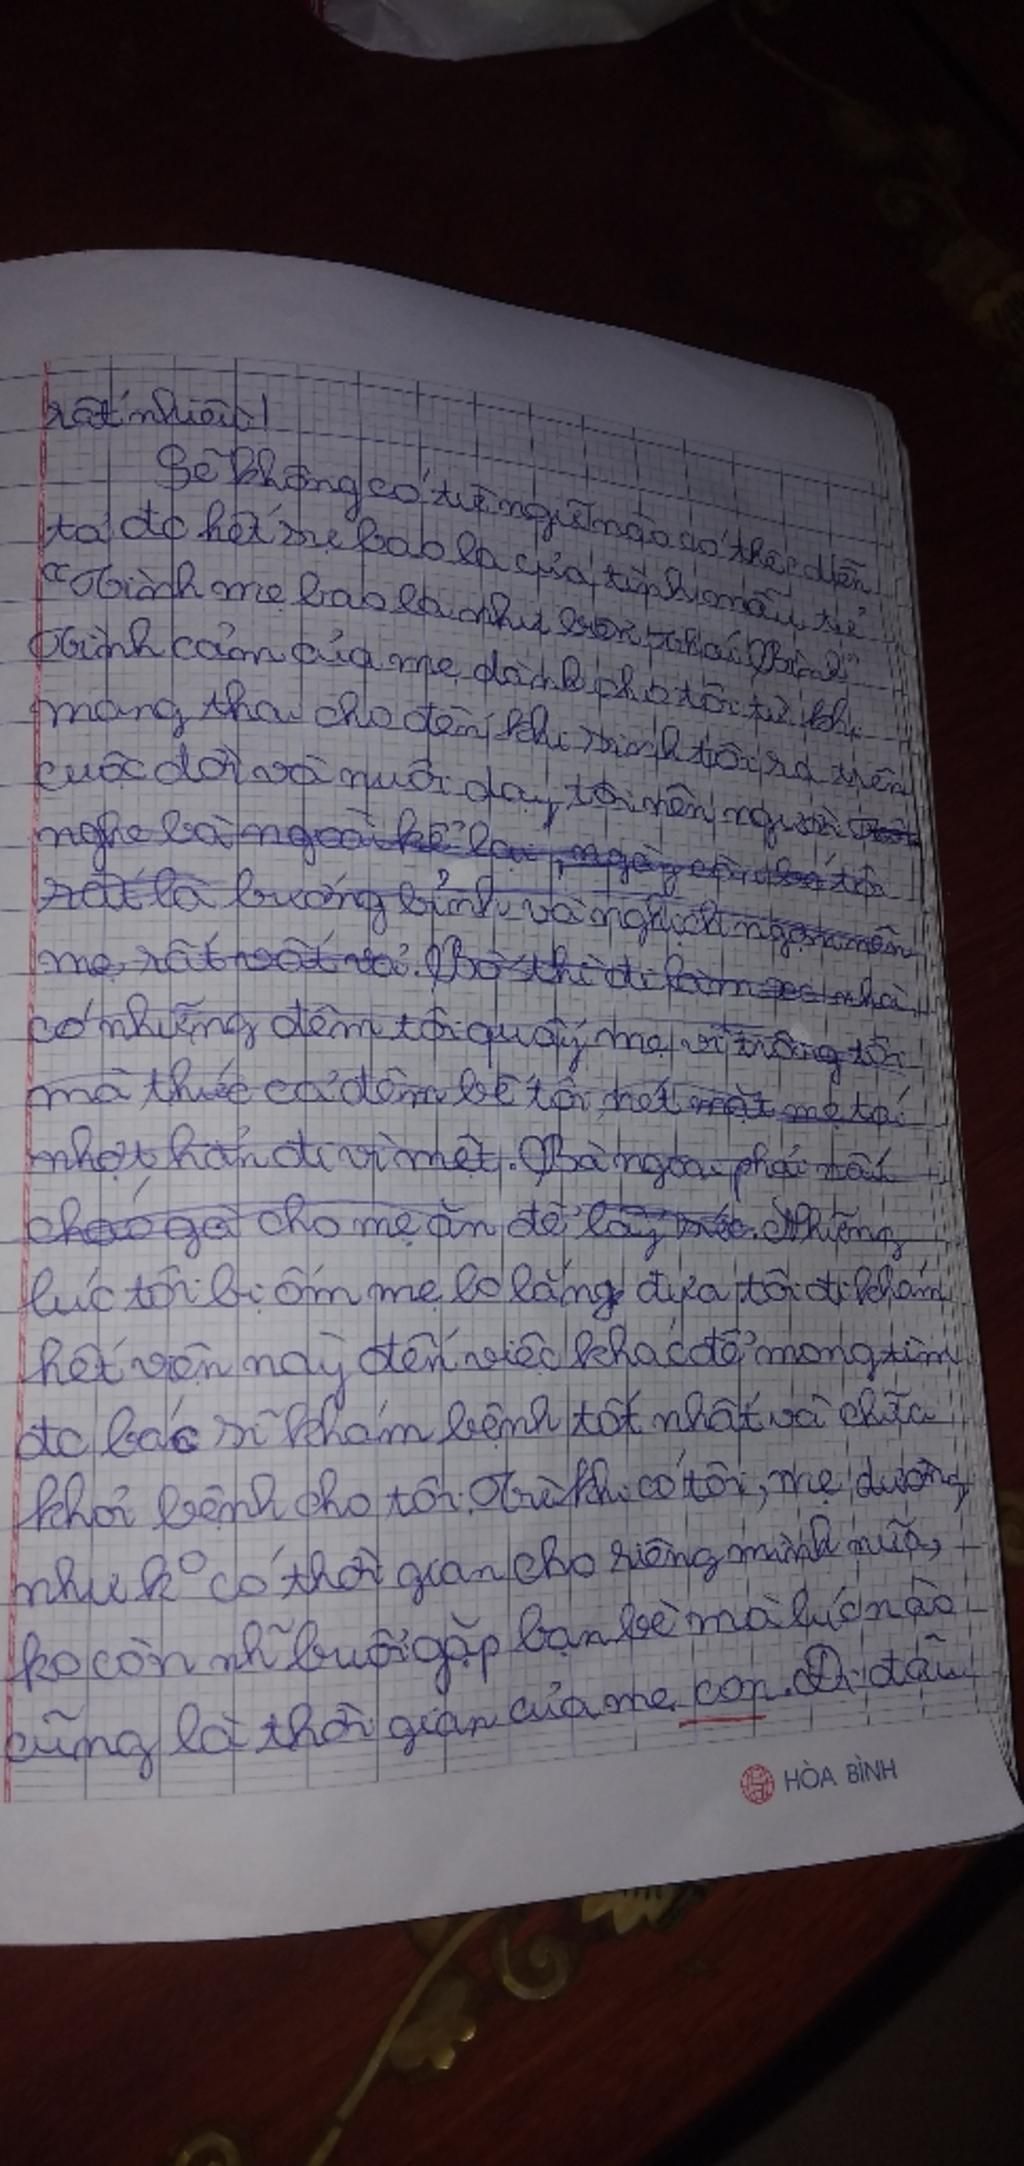 rất nhiều!
Sẽ không có từ ngữ nào có thể diễn
tả đc hết sự bao la của tình mẫu tử
"Tình mẹ bao la như biển Thái Bình"
Tình cảm của mẹ dành cho tôi từ khi
mang thai cho đến khi sinh tôi ra trên
cuộc đời và nuôi dạy tôi nên người
nghe bà ngoại kể lại, ngày còn bé tôi
rất là bướng bỉnh và nghịch ngợm nên
mẹ rất vất vả. Bố thì đi làm xa nhà,
có những đêm tôi quấy mẹ vì trông tôi
mà thức cả đêm bế tôi, nét mặt mẹ tái
nhợt hẳn đi vì mệt. Bà ngoại phải nấu
cháo gà cho mẹ ăn để lấy sức. Những
lúc tôi bị ốm mẹ lo lắng đưa tôi đi khám
hết viện này đến viêc khác để mong tìm
đc bác sĩ khám bệnh tốt nhất và chữa
khỏi bệnh cho tôi. Từ khi có tôi, mẹ dường
như kº có thời gian cho riêng mình nữa,
ko còn nh~ buổi gặp bạn bè mà lúc nào
cũng là thời gian của mẹ con. Đi đâu
HÒA BÌNH